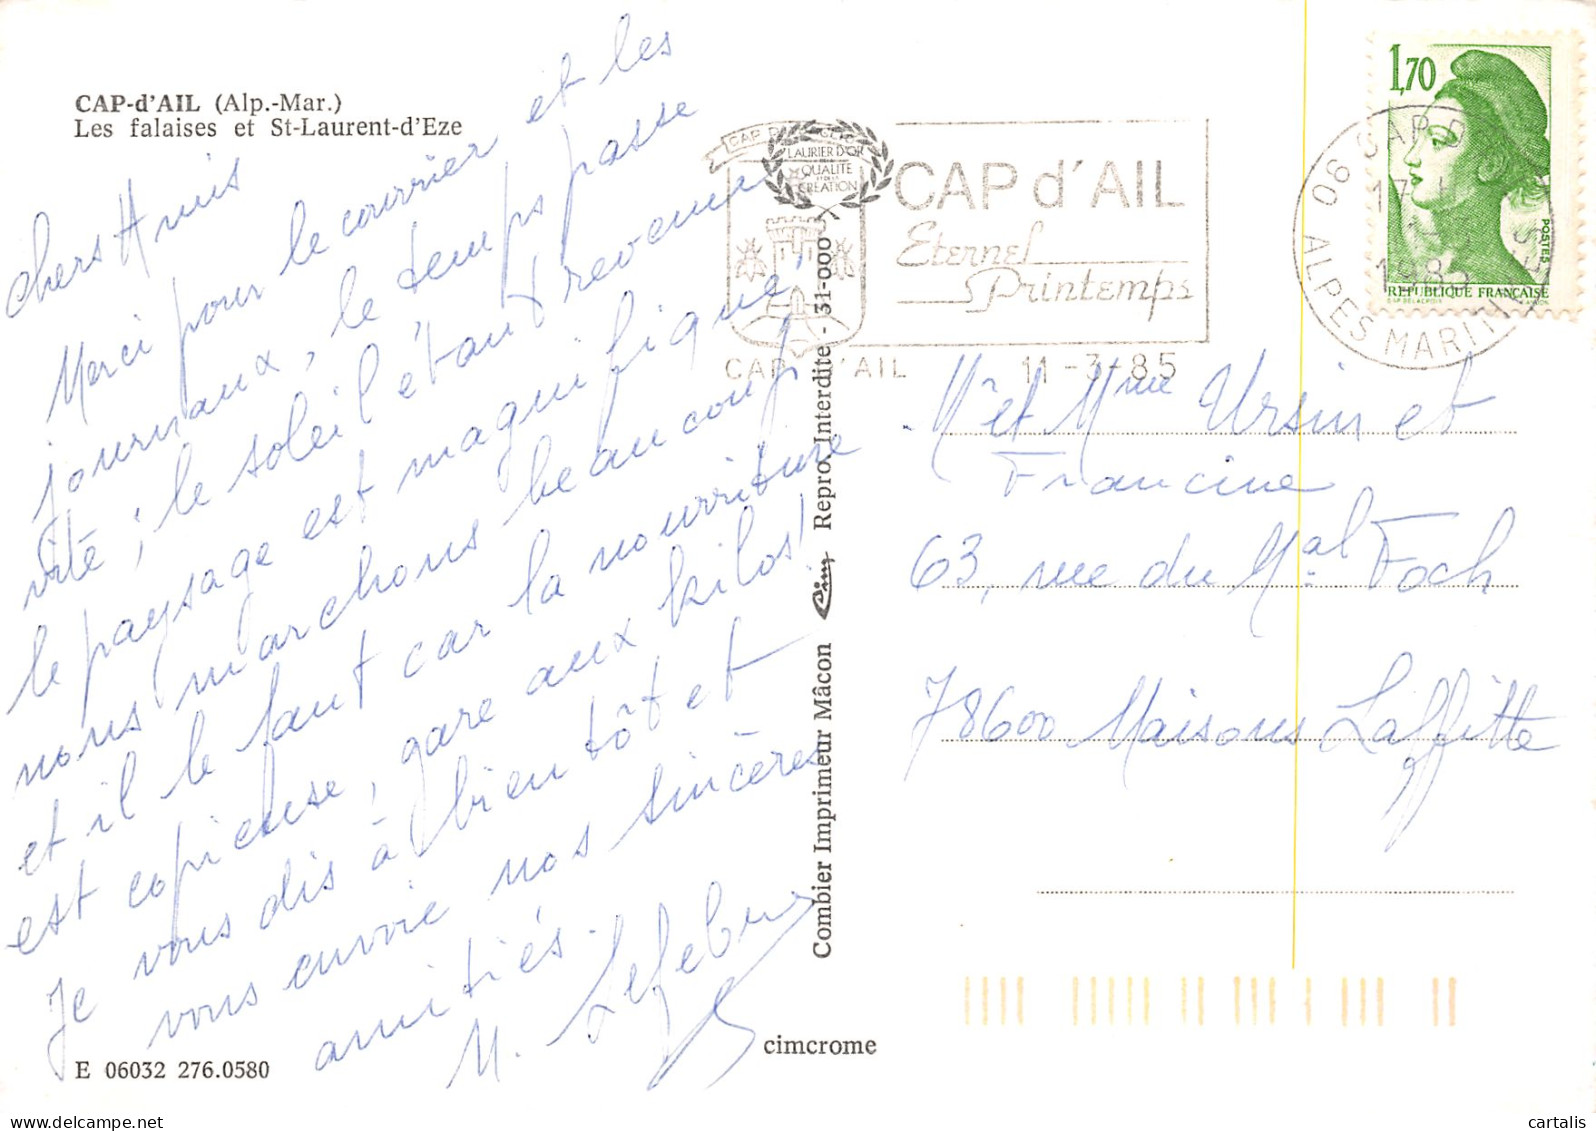 CAP-d'AIL (Alp.-Mar.)
Les falaises et St-Laurent-d'Eze
chers Amis
Merci pour le courrier et les
journaux, le temps passe
vite ; le soleil étant revenu
le paysage est magnifique !
nous marchons beaucoup
et il le faut car la nourriture
est copieuse, gare aux kilos !
Je vous dis à bientôt et
vous envoie nos sincères
amitiés.
M. Lefebvre
E 06032 276.0580
cimcrome
Combier Imprimeur Mâcon Cim Repro. Interdite - 31-000
LAURIER D'OR
QUALITE
CREATION
CAP d'AIL
Eternel
Printemps
CAP D'AIL 11-3-85
06 CAP D
ALPES MARIT
17
1985
1,70
POSTES
REPUBLIQUE FRANÇAISE
Mr et Mme Ursin et
Francine
63, rue du Mal Foch
78600 Maisons Laffitte
delcampe.net
cartalis